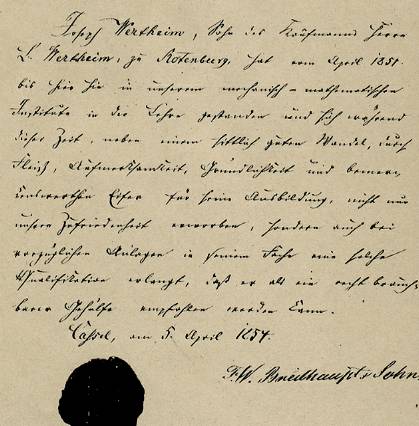 Joseph Wertheim, Sohn des Kaufmanns Herrn
L. Wertheim, zu Rotenburg, hat vom April 1851.
bis hier hin in unserem mechanisch-mathematischen
Institute in der Lehre gestanden und sich während
dieser Zeit, neben einem sittlich guten Wandel, durch
Fleiß, Aufmerksamkeit, Gründlichkeit und
Eifer für seine Ausbildung, nicht nur
unsere Zufriedenheit erworben, sondern auch bei
vorzüglichen Anlagen in seinem Fache eine solche
Qualifikation erlangt, daß er als ein recht brauch-
barer Gehülfe empfohlen werden kann.
Cassel, am 5. April 1854.
F. W. Breithaupt & Sohn